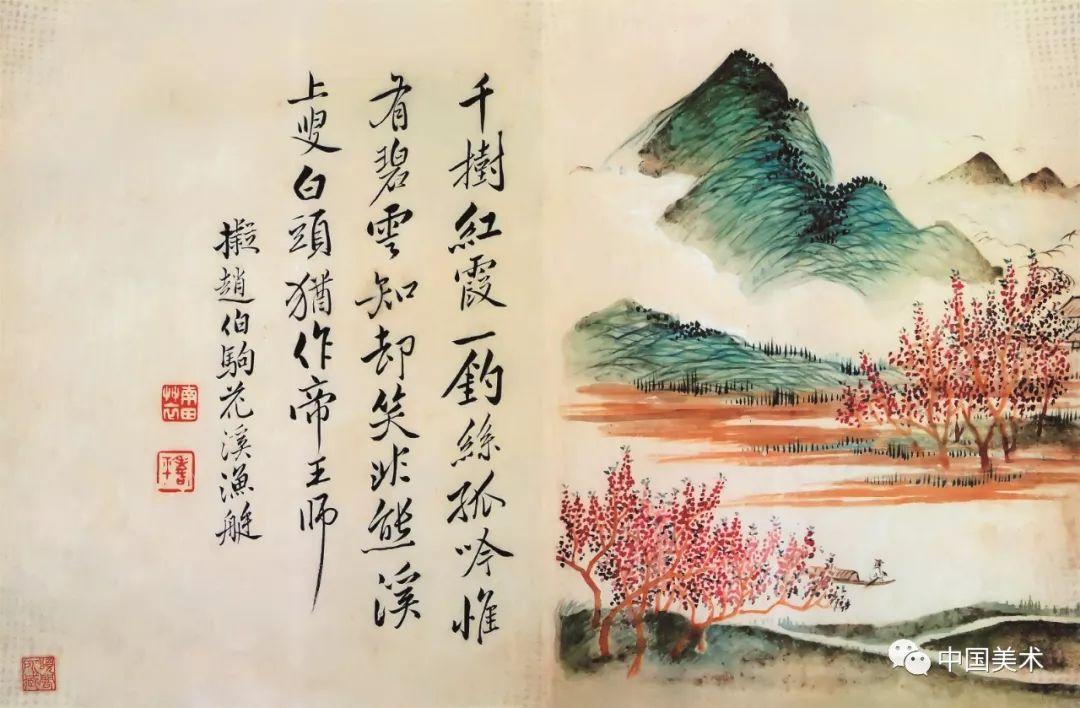 千樹紅霞一釣絲孤吟惟
有碧雲知却笑非熊溪
上叟白頭猶作帝王師
擬趙伯駒花溪漁艇
南田
草衣
壽平
中国美术